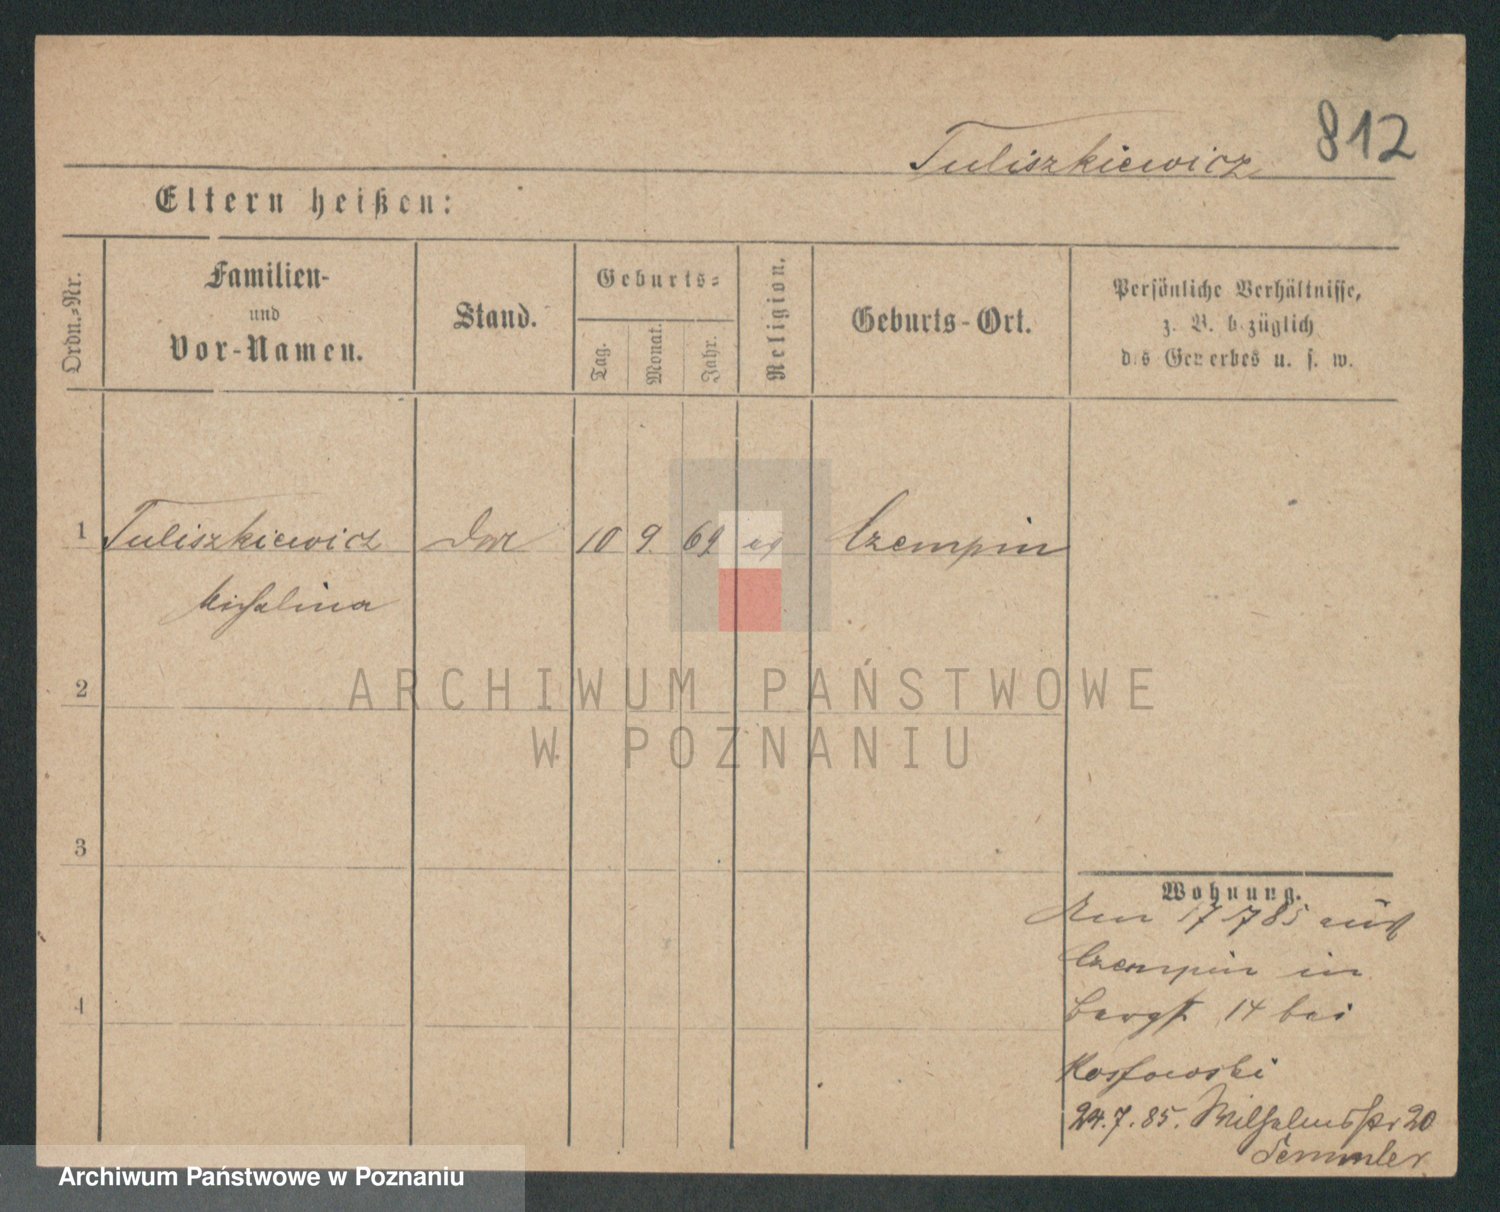 812
Tuliszkiewicz
Eltern heißen:
Ordn.-Nr.
Familien-
und
Vor-Namen.
Stand.
Geburts-
Tag.
Monat.
Jahr.
Religion.
Geburts-Ort.
Persönliche Verhältnisse,
z. B. bezüglich
des Gewerbes u. s. w.
1 Tuliszkiewicz 10 9. 69 Czempin
Michalina
2
3
4
Wohnung.
Am 17 7 85 aus
Czempin in
Bergstr 14 bei
24.7.85. Wilhelmsstr 20
Semmler
ARCHIWUM PAŃSTWOWE
W POZNANIU
Archiwum Państwowe w Poznaniu